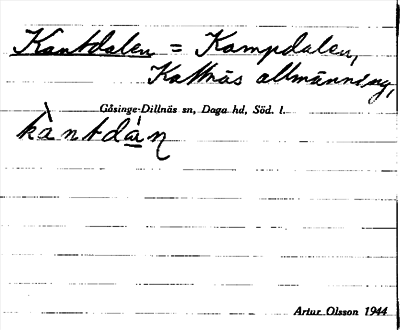 Kantdalen = Kampdalen,
Kattnäs allmänning,
Gåsinge-Dillnäs sn, Daga hd, Söd. l.
kàntdàn
Artur Olsson 1944